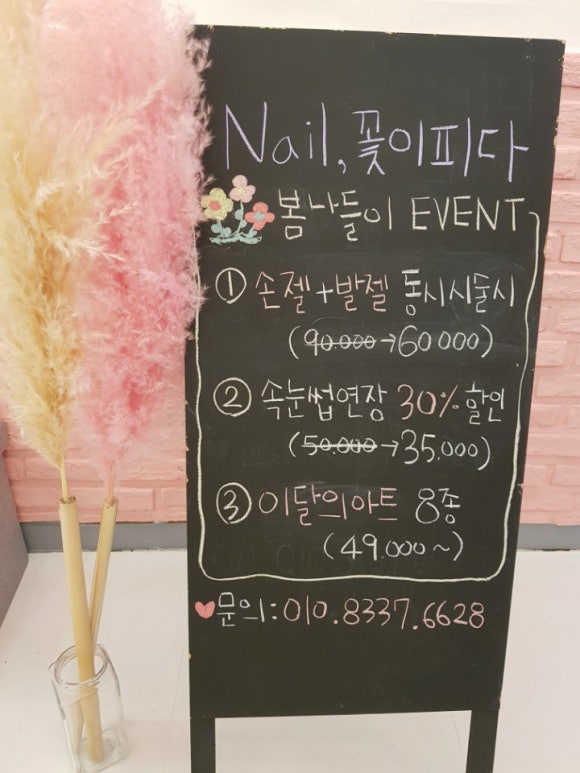 Nail, 꽃이피다
봄나들이 EVENT
① 손젤+발젤 동시시술시
(90.000→60.000)
② 속눈썹연장 30% 할인
(50.000→35.000)
③ 이달의아트 8종
(49.000~)
문의:010.8337.6628